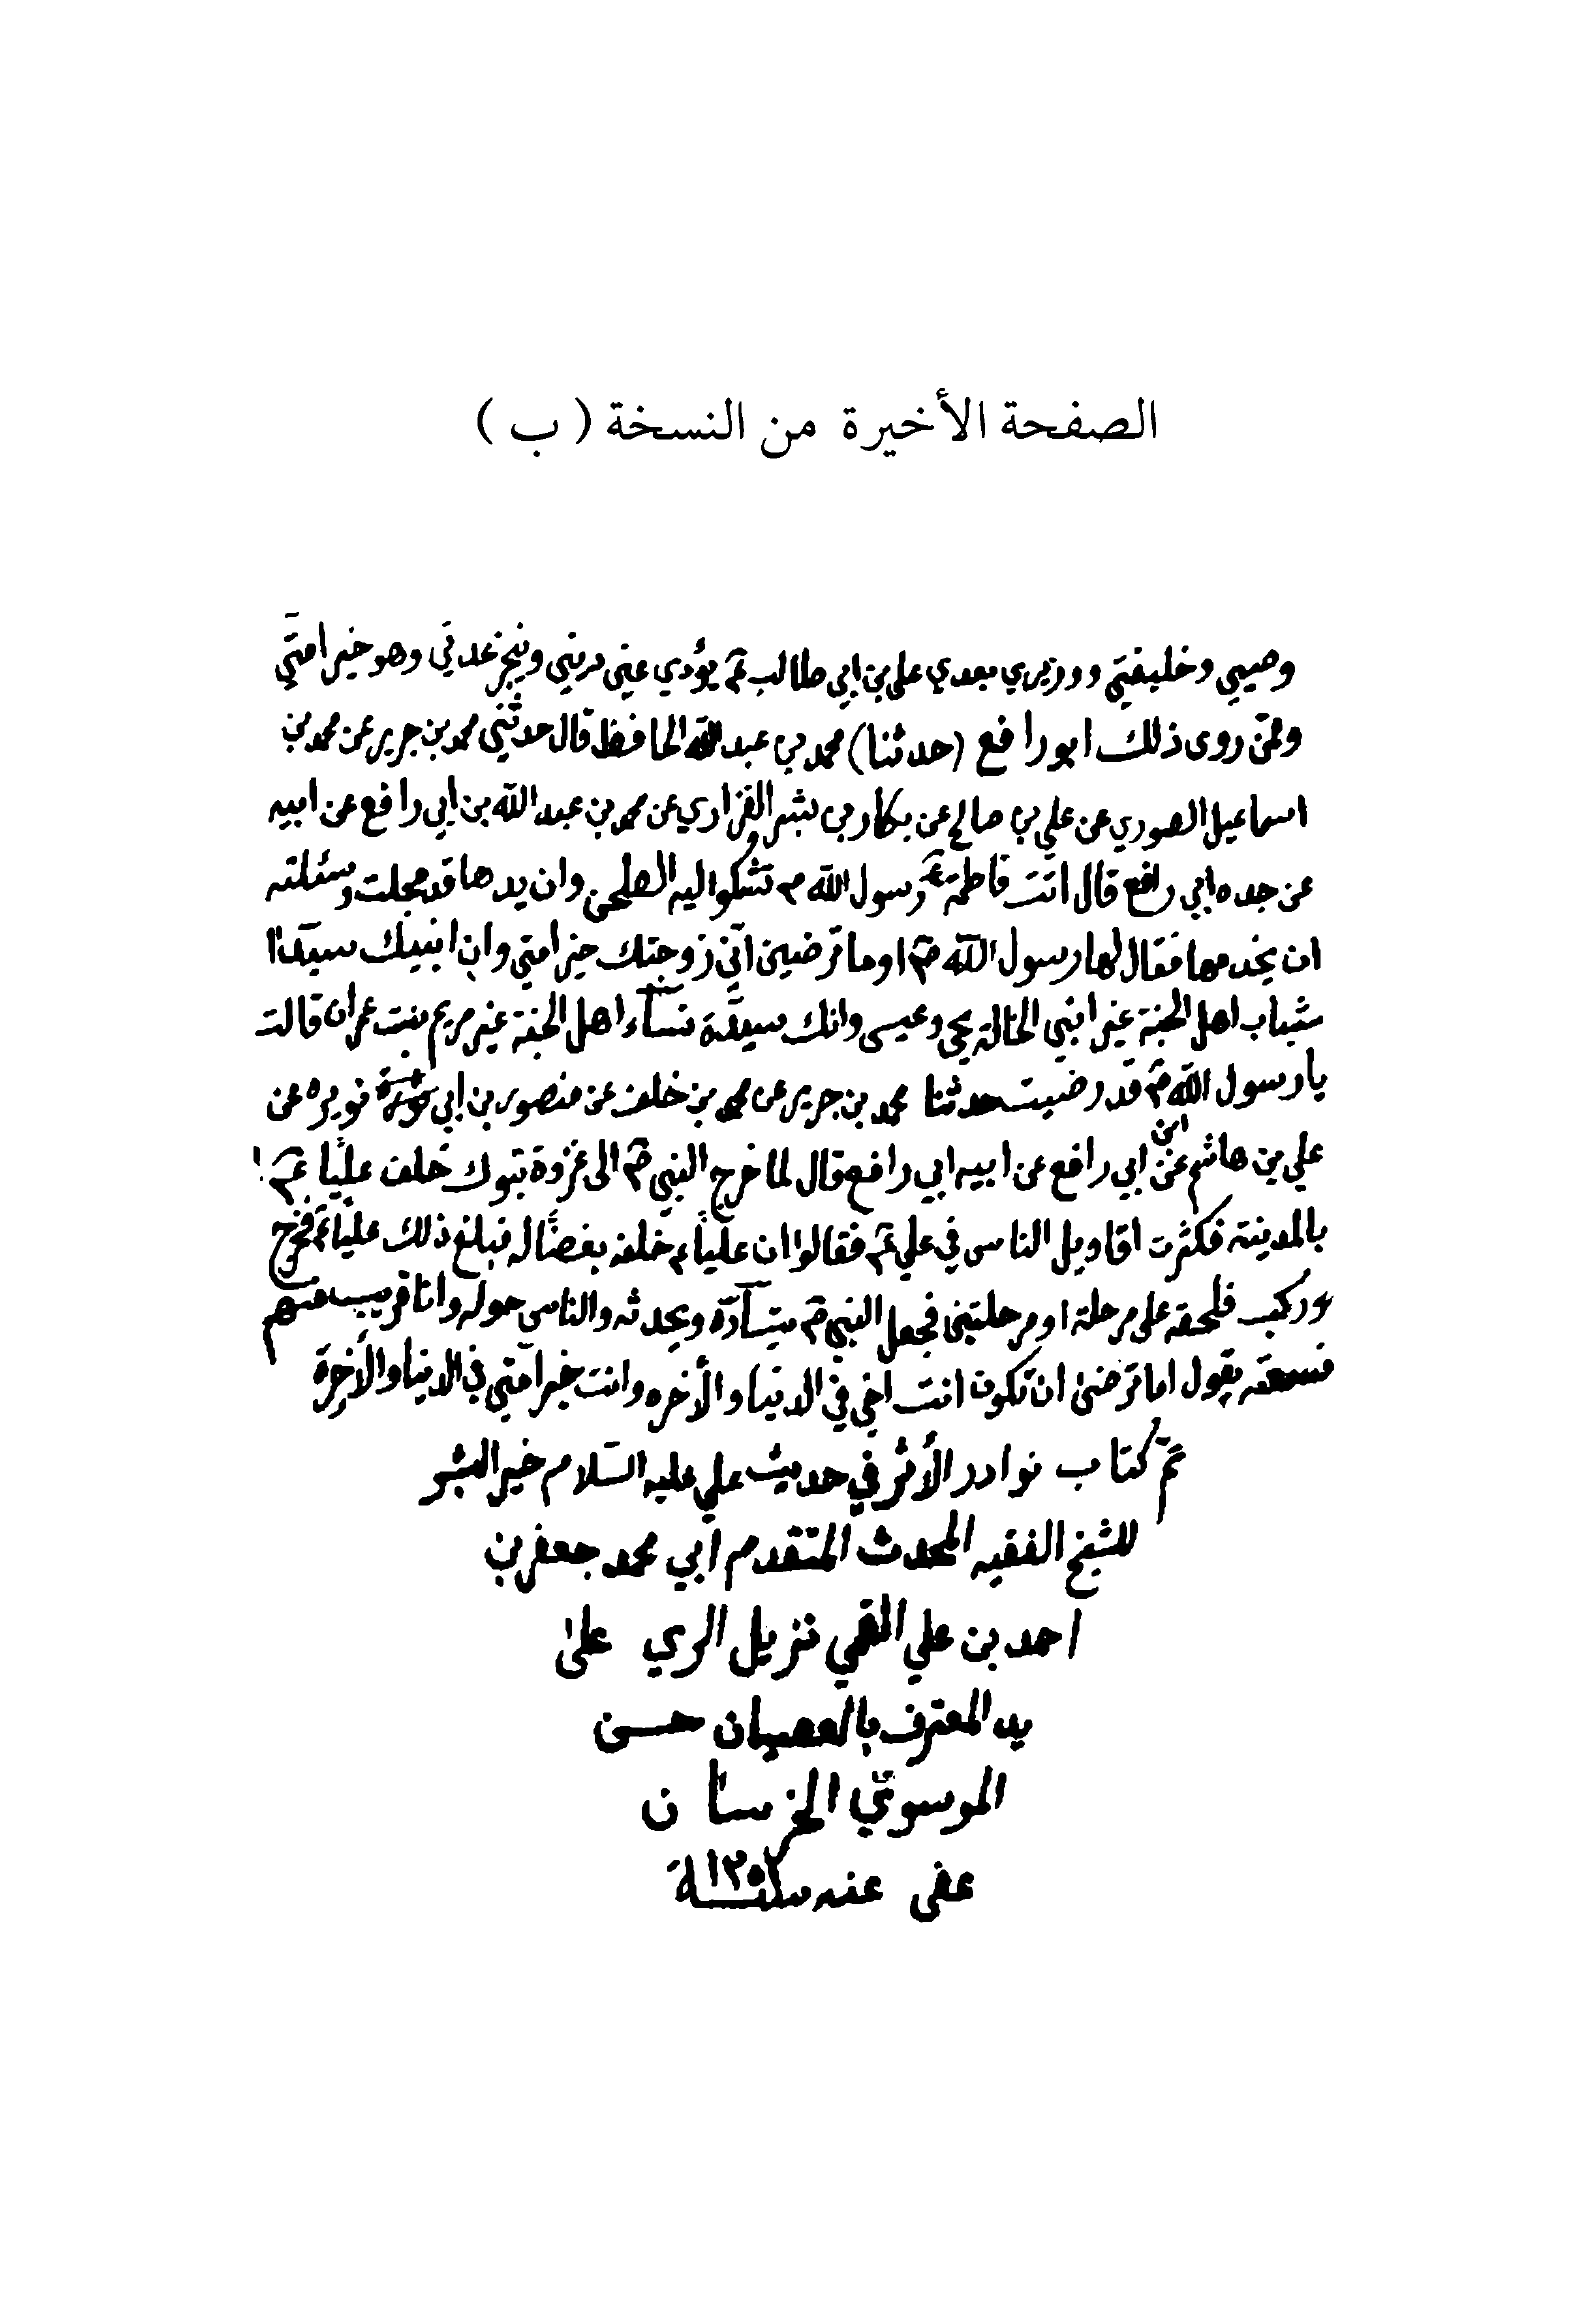 الصفحة الأخيرة من النسخة ( ب )
وصيي وخليفتي ووزيري بعدي علي بن ابي طالب ع يؤدي عني ديني وينجز عدتي وهو خير امتي
وممن روى ذلك ابو رافع (حدثنا) محمد بن عبد الله الحافظ قال حدثني محمد بن جرير عن محمد بن
اسماعيل الصوري عن علي بن صالح عن بكار بن بشر الفزاري عن محمد بن عبد الله بن ابي رافع عن ابيه
عن جده ابي رافع قال اتت فاطمة ع رسول الله ص تشكوا اليه الطلحن وان يدها قد مجلت وسئلته
ان يخدمها فقال لها رسول الله ص اوما ترضين اني زوجتك خير امتي وان ابنيك سيدا
شباب اهل الجنة غير ابني الخالة يحى وعيسى وانك سيدة نسآء اهل الجنة غير مريم بنت عمران قالت
يا رسول الله ص قد رضيت حدثنا محمد بن جرير عن محمد بن خلف عن منصور بن ابي نويره عن
علي بن هاشم عن ابن ابي رافع عن ابيه ابي رافع قال لما خرج النبي ص الى غزوة تبوك خلف علياً ع
بالمدينة فكثرت اقاويل الناس في علي ع فقالوا ان علياً ع خلفه بغضاً له فبلغ ذلك علياً ع فخرج
وركب فلحقه على مرحلة او مرحلتين فجعل النبي ص يتسآره ويحدثه والناس حوله وانا قريب منهم
فسمعته يقول اما ترضى ان تكون انت اخي في الدنيا والأخره وانت خير امتي في الدنيا والأخرة
تم كتاب نوادر الأثر في حديث علي عليه السلام خير البشر
للشيخ الفقيه المحدث المتقدم ابي محمد جعفر بن
احمد بن علي القمي نزيل الري على
يد المعترف بالعصيان حسن
الموسوي الخرسان
عفى عنه سنة ١٣٥٢